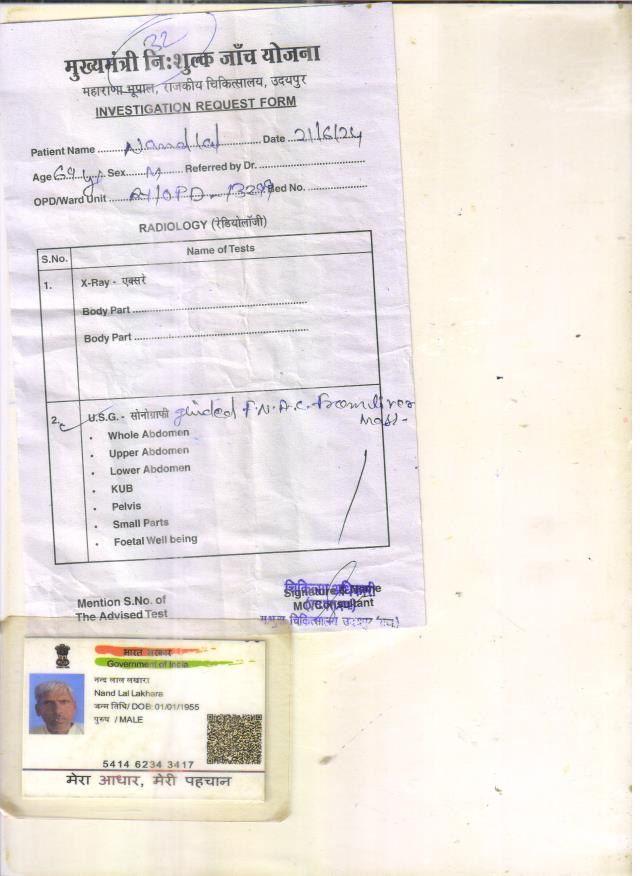 32
मुख्यमंत्री नि:शुल्क जाँच योजना
महाराणा भूपाल, राजकीय चिकित्सालय, उदयपुर
INVESTIGATION REQUEST FORM
Patient Name Nandlal Date 21/6/24
Age 69 yr. Sex M Referred by Dr.
OPD/Ward Unit Bed No.
RADIOLOGY (रेडियोलॉजी)
S.No. Name of Tests
1. X-Ray - एक्सरे
Body Part
Body Part
2. U.S.G. - सोनोग्राफी guided F.N.A.C. From liver
Mass -
• Whole Abdomen
• Upper Abdomen
• Lower Abdomen
• KUB
• Pelvis
• Small Parts
• Foetal Well being
Mention S.No. of
The Advised Test
चिकित्सा अधिकारी
Signature & Name
MO/Consultant
चिकित्सालय उदयपुर (राज.)
भारत सरकार
Government of India
नन्द लाल लखारा
Nand Lal Lakhara
जन्म तिथि/ DOB: 01/01/1955
पुरुष / MALE
5414 6234 3417
मेरा आधार, मेरी पहचान